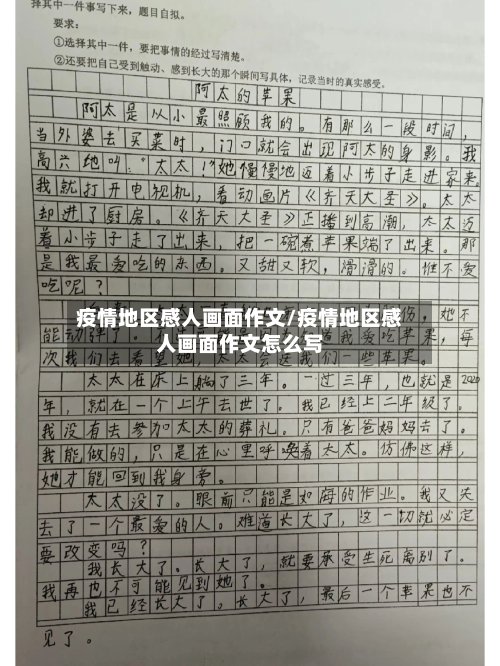 择其中一件事写下来，题目自拟。
要求：
①选择其中一件，要把事情的经过写清楚。
②还要把自己受到触动、感到长大的那个瞬间写具体，记录当时的真实感受。
阿太的苹果
阿太是从小最照顾我的。有那么一段时间，
当外婆去买菜时，门口就会出现阿太的身影。我
高兴地叫：“太太！”她慢慢地迈着小步子走进家来。
我就打开电视机，看动画片《齐天大圣》。太太
却进了厨房。《齐天大圣》正播到高潮，太太迈
着小步子走了出来，把一碗煮苹果端了出来。那
是我最爱吃的东西。又甜又软，滑滑的。谁不爱
吃呢？
伤，她不
疫情地区感人画面作文/疫情地区感
能动弹了。
我爱吃苹果，每
人画面作文怎么写
次我们去看望她，太太会送我们一些苹果。
太太在床上躺了三年。一过三年，也就是2020
年，就在一个上午去世了。我已经上二年级了。
我没有去参加太太的葬礼。只有爸爸妈妈去了。
我能做的，只是在心里呼唤着太太。仿佛这样，
她才能回到我身旁。
太太没了。眼前只能是如海的作业。我又失
去了一个最爱的人。难道长大了，这一切就必定
要改变吗？
我长大了。长大了，就要承受生死离别了。
我再也不可能见到她了。
我已经长大了。长大了，最后一个苹果也不
见了。